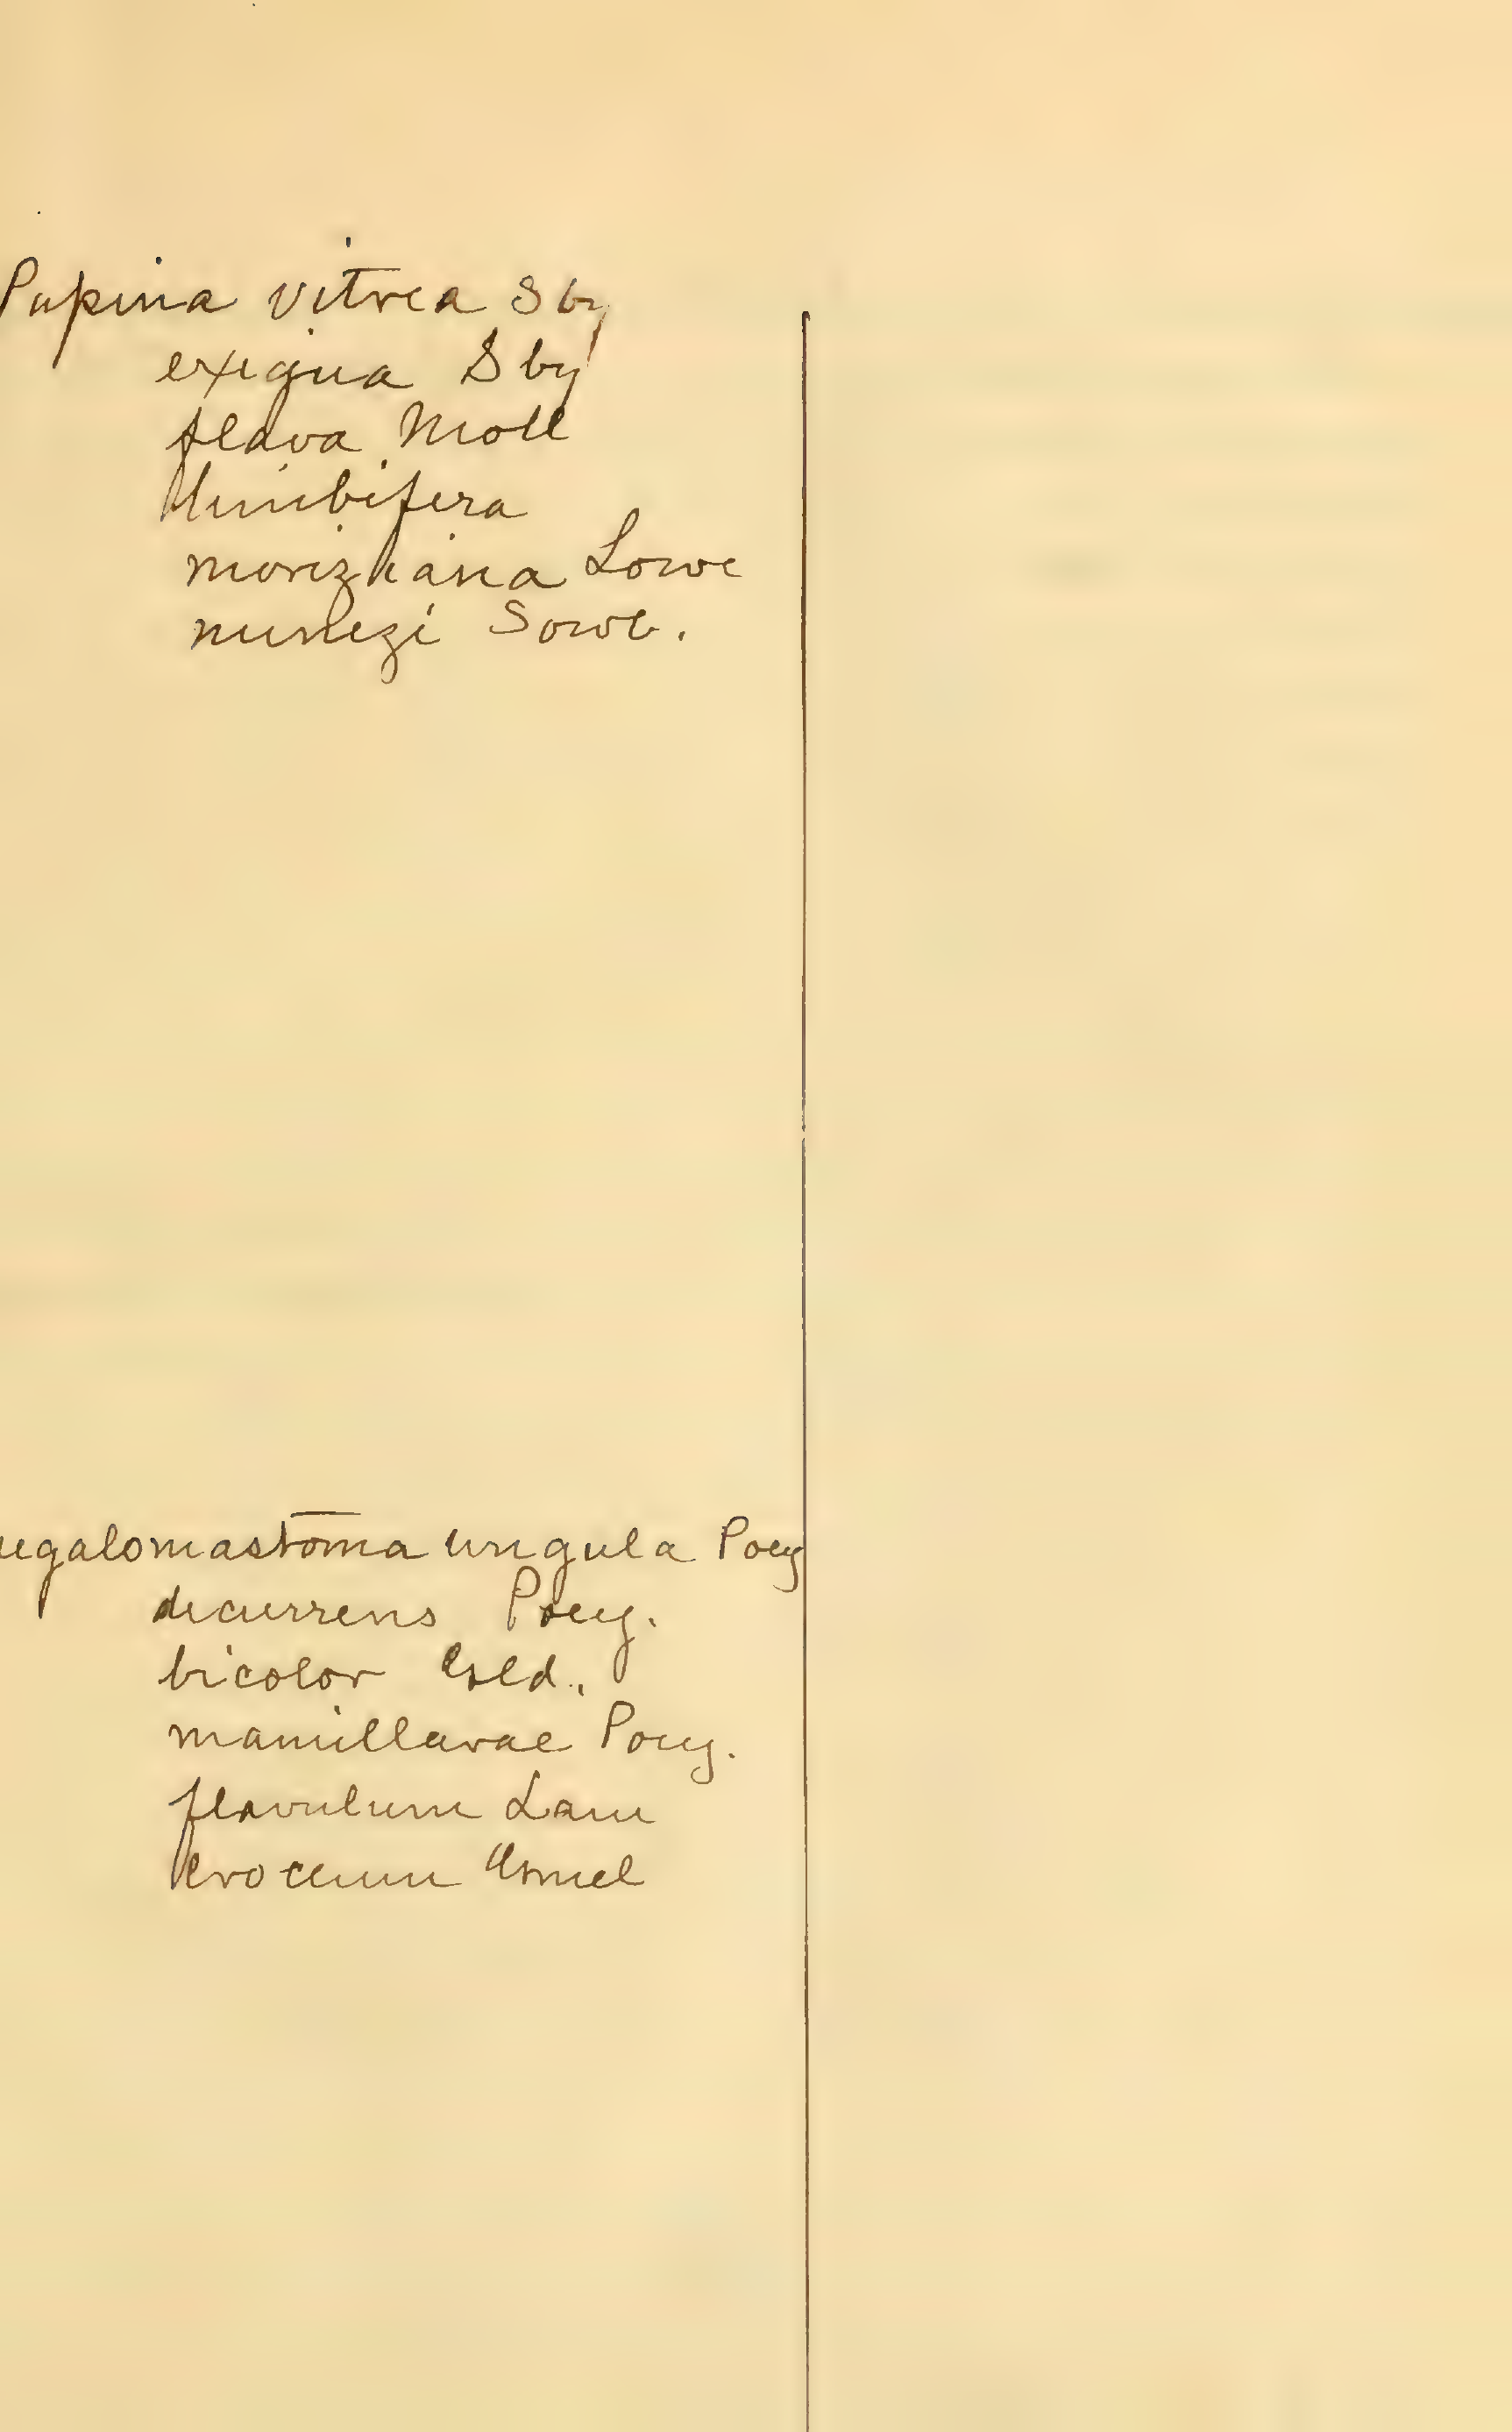 Pupina vitrea Sby
exigua Sby
flava Moll
limbifera
morizhana Lowe
nunezi Sowb.
egalomastoma ungula Poey
decurrens Poey.
bicolor Gld.
mamillarae Poey.
flavulum Lam
croceum Gmel